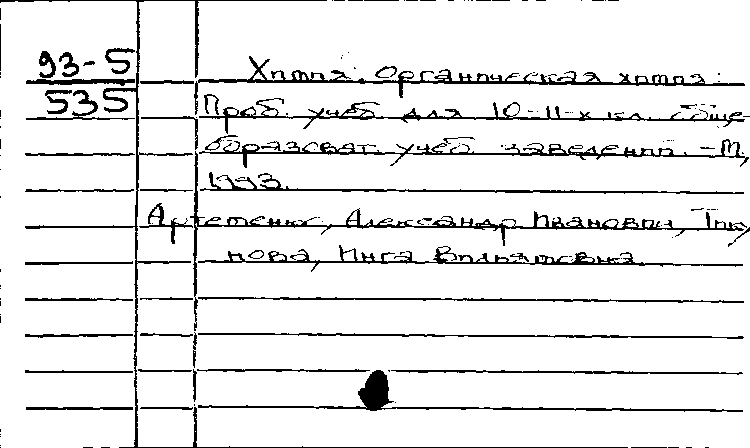 93-5
535
Химия. Органическая химия:
Проб. учеб. для 10-11-х кл. обще
образоват. учеб. заведений. - М,
1993.
Артеменко, Александр Иванович, Тику
нова, Инга Вильямовна